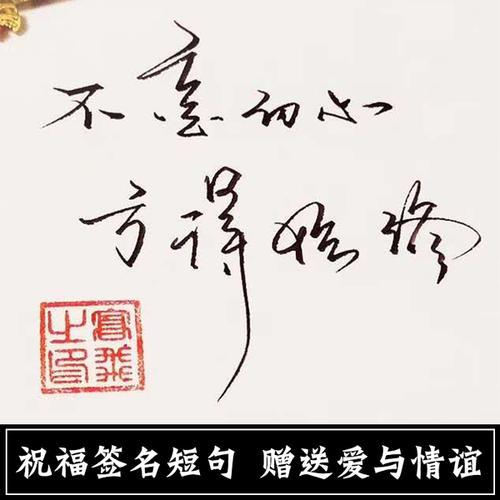 不忘初心
方得始终
祝福签名短句 赠送爱与情谊